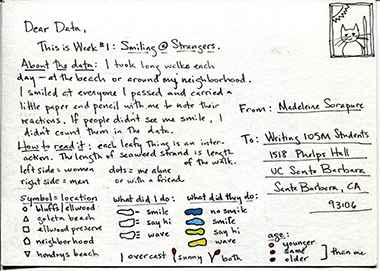 Dear Data,
This is Week #1: Smiling @ Strangers.
About the data: I took long walks each
day — at the beach or around my neighborhood.
I smiled at everyone I passed and carried a
little paper and pencil with me to note their
reactions. If people didn't see me smile, I
didn't count them in the data.
How to read it: each leafy thing is an inter-
action. The length of seaweed strand is length
of the walk.
left side = women dots = me alone
right side = men or with a friend.
Symbol = location
bluffs/ellwood
goleta beach
ellwood preserve
neighborhood
hendrys beach
What did I do:
= smile
= say hi
= wave
What did they do:
no smile
smile
say hi
wave
overcast sunny both
age:
younger
same
older
than me
From: Madeleine Sorapure
To: Writing 105M Students
1518 Phelps Hall
UC Santa Barbara
Santa Barbara, CA
93106